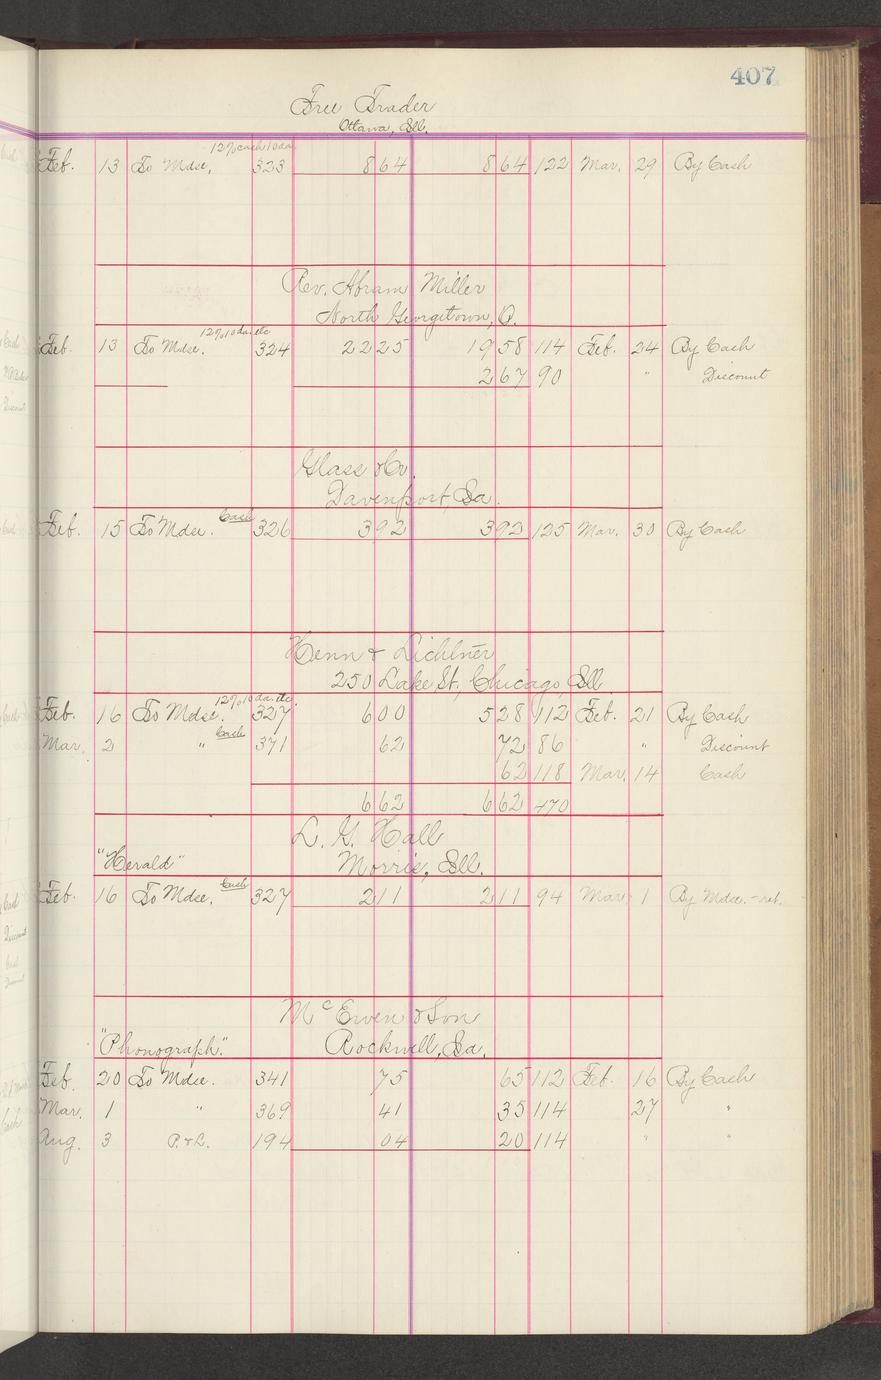 407
Free Trader
Ottawa, Ill.
12% cash 10 da.
Feb. 13 To Mdse. 323 8 64 8 64 122 Mar. 29 By Cash
Rev. Abram Miller
North Georgetown, O.
12% 10 da. etc
Feb. 13 To Mdse. 324 22 25 19 58 114 Feb. 24 By Cash
2 67 90 " Discount
Glass & Co.
Davenport, Ia.
Cash
Feb. 15 To Mdse. 326 3 92 3 92 125 Mar. 30 By Cash
Henn & Lichtner
250 Lake St., Chicago, Ill.
12% 10 da. etc.
Feb. 16 To Mdse. 327 6 00 5 28 112 Feb. 21 By Cash
Cash
Mar. 2 " 371 62 72 86 " Discount
62 118 Mar. 14 Cash
6 62 6 62 470
L. G. Hall
"Herald" Morris, Ill.
Cash
Feb. 16 To Mdse. 327 2 11 2 11 94 Mar. 1 By Mdse. - ret.
McEwen & Son
"Phonograph." Rockwell, Ia.
Feb. 20 To Mdse. 341 75 65 112 Feb. 16 By Cash
Mar. 1 " 369 41 35 114 27 "
Aug. 3 P. & L. 194 04 20 114 " "